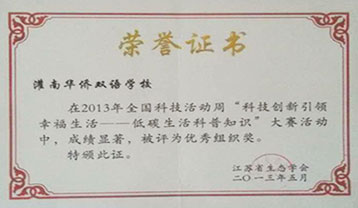 荣誉证书
灌南华侨双语学校
在2013年全国科技活动周“科技创新引领
幸福生活——低碳生活科普知识”大赛活动
中，成绩显著，被评为优秀组织奖。
特颁此证。
江苏省生态学会
二〇一三年五月